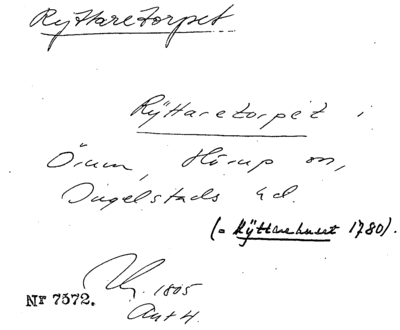 Ryttaretorpet
Ryttaretorpet i
Örum, Hörup sn,
Ingelstads hd.
(= Ryttarehuset 1780).
1805
Nr 7572.
Ant 4.